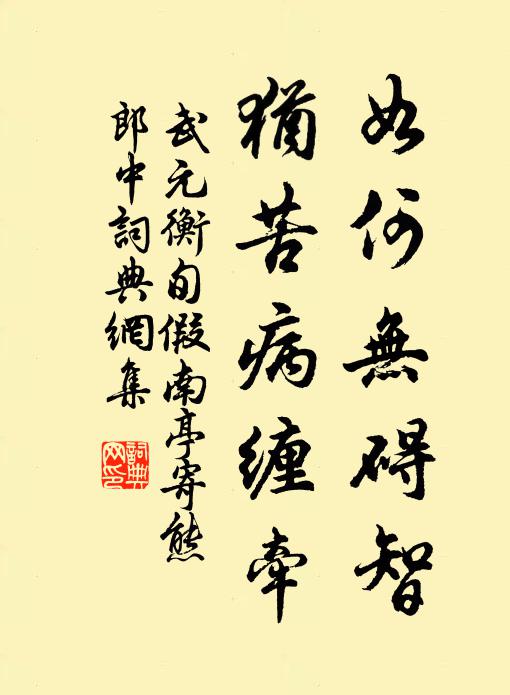 如何無碍智
猶苦病缠牵
武元衡旬假南亭寄熊
郎中詞典網集
詞典网印